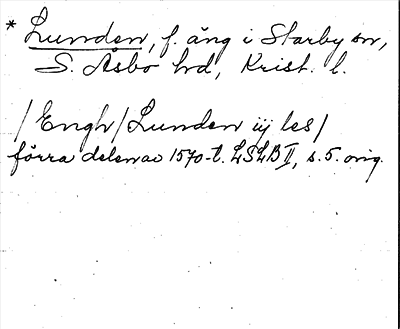 * Lunden, f. äng i Starby sn,
S. Åsbo hd, Krist. l.
/Engh/Lunden iij les/
förra delen av 1570-t. LSLB II, s. 5. orig.